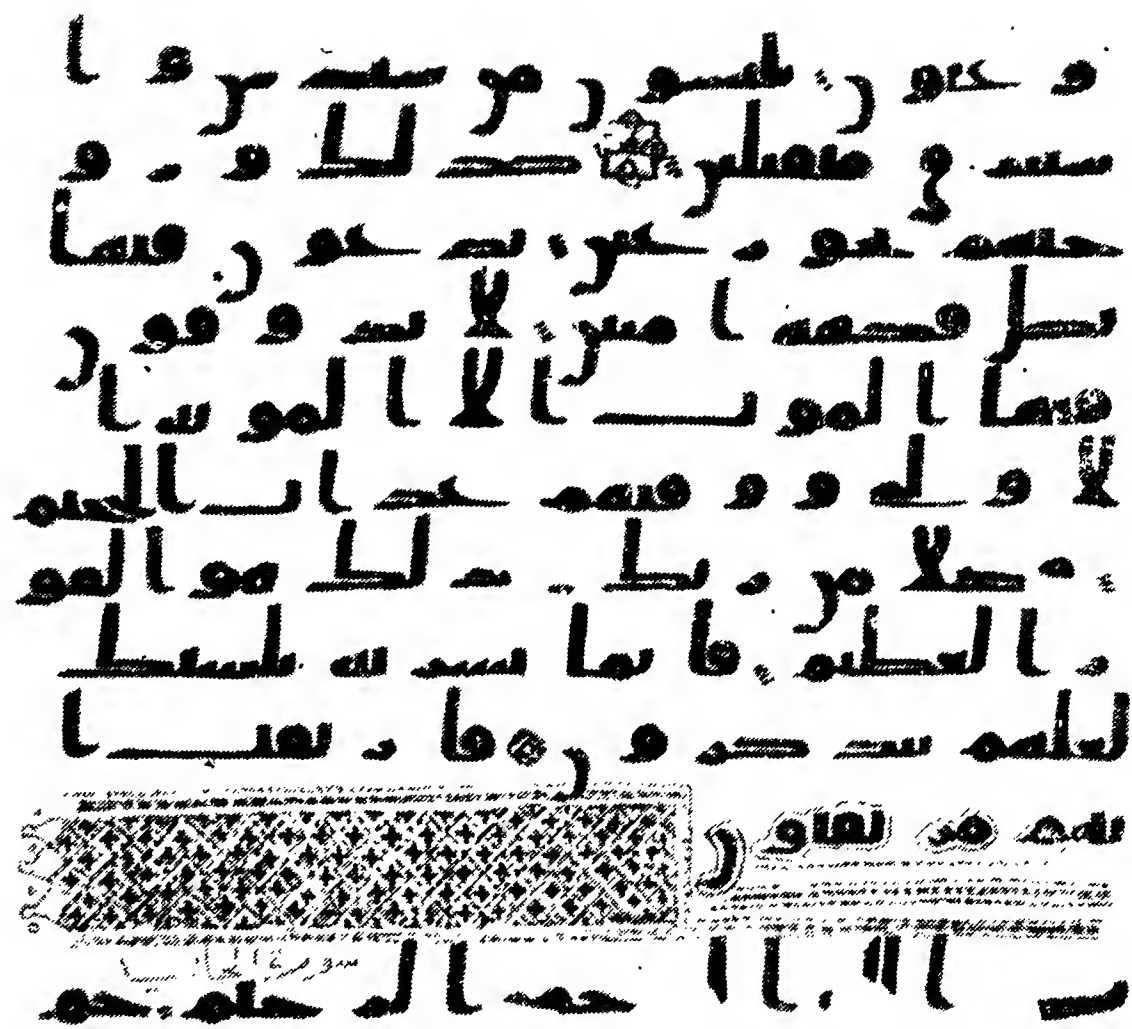 و عيون يلبسون من سندس و ا
ستبرق متقبلين كذلك و زو
جنهم بحور عين يدعون فيها
بكل فكهة امنين لا يذوقون
فيها الموت الا الموتة ا
لاولى ووقيهم عذاب الجحيم
فضلا من ربك ذلك هو الفو
ز العظيم فانما يسرنه بلسنك
لعلهم يتذكرون فارتقب ا
نهم مرتقبون
بسم الله الرحمن الرحيم حم